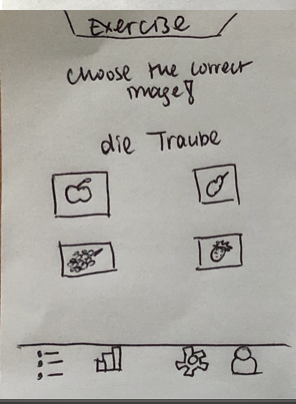 Exercise
choose the correct
image!
die Traube